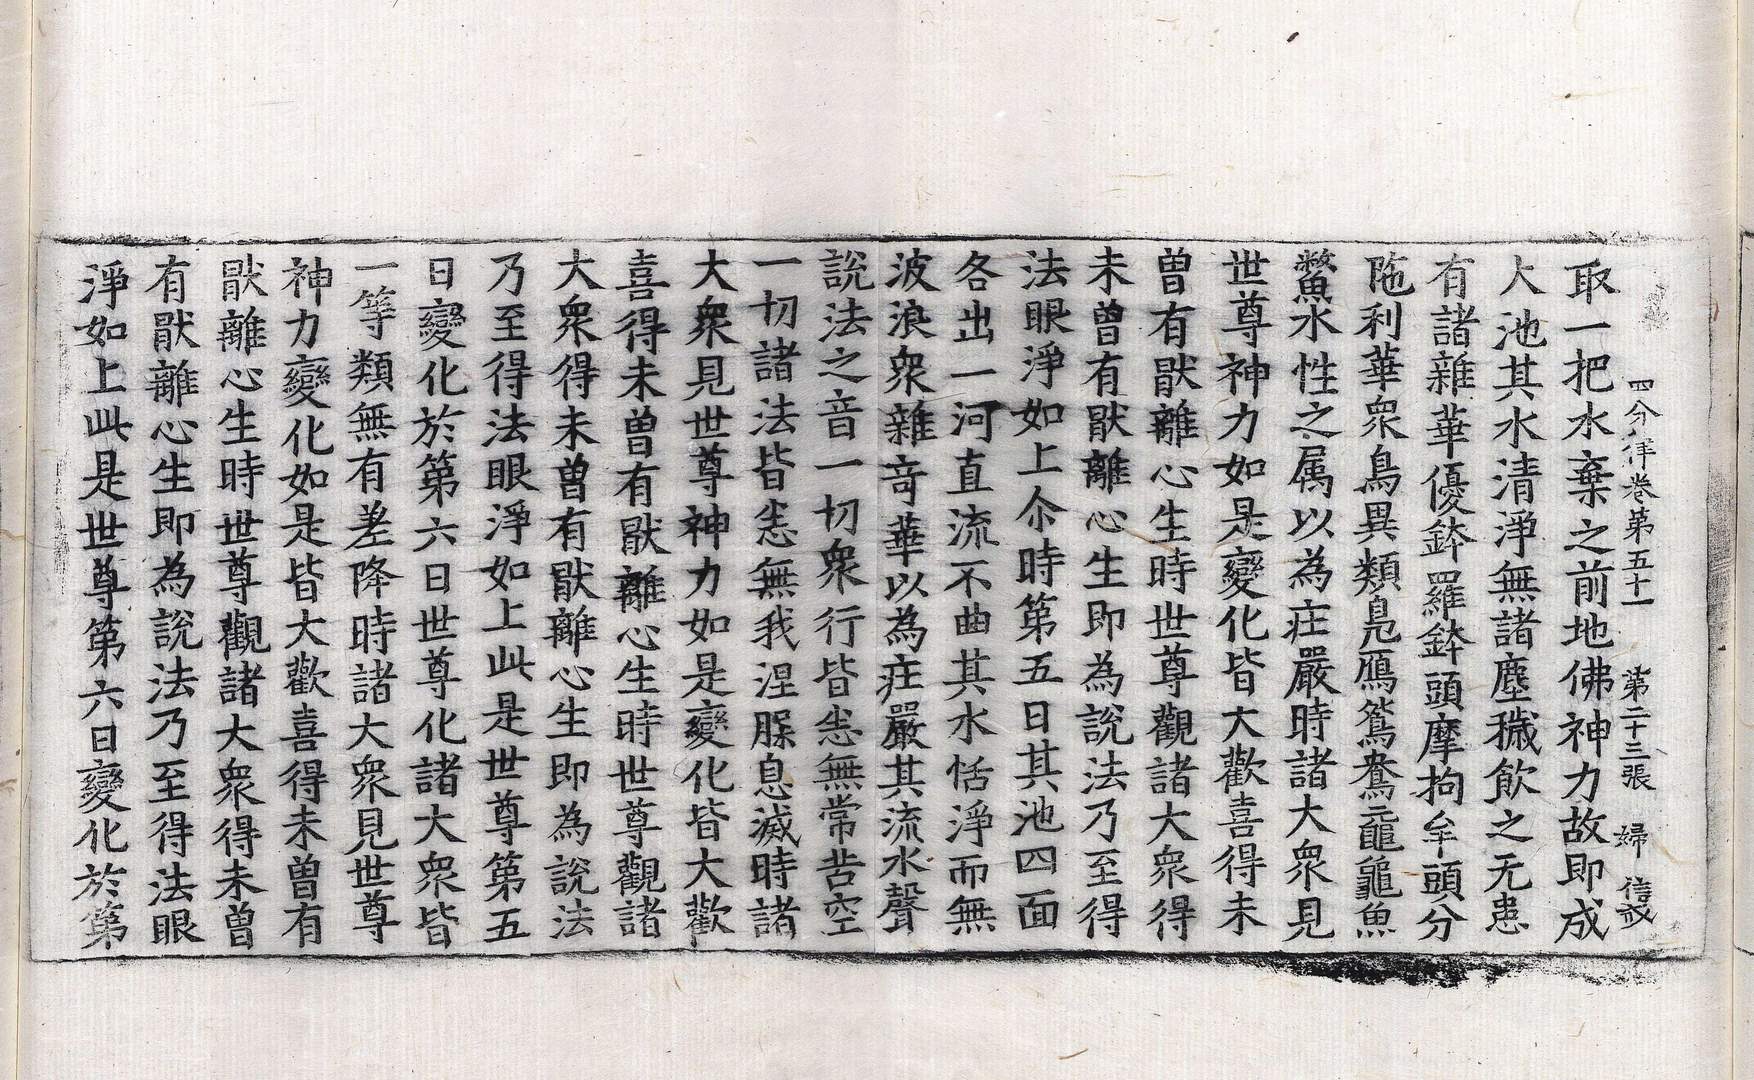 四分律卷第五十一 第二十三張 婦 信戒
取一把水棄之前地佛神力故即成
大池其水清淨無諸塵穢飲之无患
有諸雜華優鉢羅鉢頭摩拘牟頭分
陁利華衆鳥異類鳧鴈鴛鴦黿龜魚
鱉水性之属以為庄嚴時諸大衆見
世尊神力如是變化皆大歡喜得未
曾有猒離心生時世尊觀諸大衆得
未曾有猒離心生即為說法乃至得
法眼淨如上尒時第五日其池四面
各出一河直流不曲其水恬淨而無
波浪衆雜奇華以為庄嚴其流水聲
說法之音一切衆行皆悉無常苦空
一切諸法皆悉無我涅槃息滅時諸
大衆見世尊神力如是變化皆大歡
喜得未曾有猒離心生時世尊觀諸
大衆得未曾有猒離心生即為說法
乃至得法眼淨如上此是世尊第五
日變化於第六日世尊化諸大衆皆
一等類無有差降時諸大衆見世尊
神力變化如是皆大歡喜得未曾有
猒離心生時世尊觀諸大衆得未曾
有猒離心生即為說法乃至得法眼
淨如上此是世尊第六日變化於第